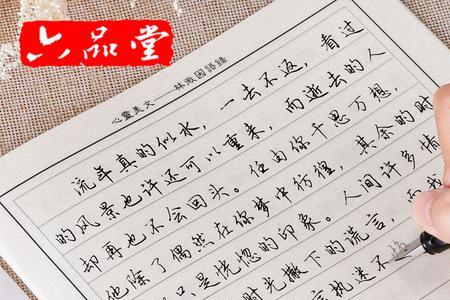 六品堂
心靈美文 林徽因語錄
流年真的似水，一去不返，看过
的风景也许还可以重来，而逝去的人
却再也不会回头。任由你千思万想，
他除了偶然在你梦中彷徨，其余的时
只是恍惚的印象。人间许多情
时光撒下的谎言，而我
言执迷不